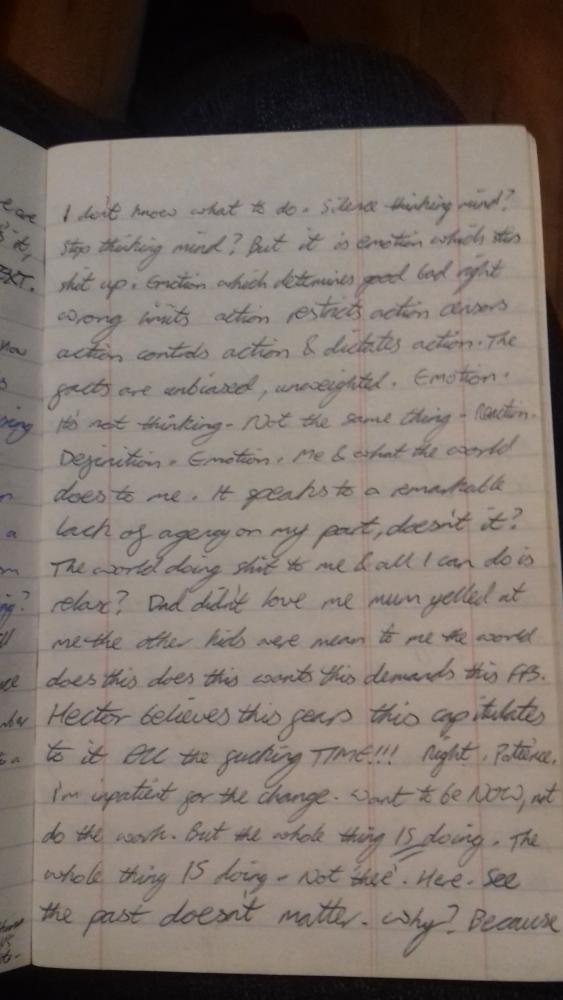 I don't know what to do. Silence thinking mind?
Stop thinking mind? But it is emotion which this
shit up. Emotion which determines good bad right
wrong limits action restricts action censors
action controls action & dictates action. The
facts are unbiased, unweighted. Emotion.
It's not thinking - Not the same thing - Reaction.
Definition. Emotion. Me & what the world
does to me. It speaks to a remarkable
lack of agency on my part, doesn't it?
The world doing shit to me & all I can do is
relax? Dad didn't love me mum yelled at
me the other kids were mean to me the world
does this does this wants this demands this FFS.
Hector believes this fears this capitulates
to it ALL the fucking TIME!!! Right. Patience.
I'm inpatient for the change. Want to be NOW, not
do the work. But the whole thing IS doing. The
whole thing IS doing - Not 'there'. Here. See
the past doesn't matter. Why? Because